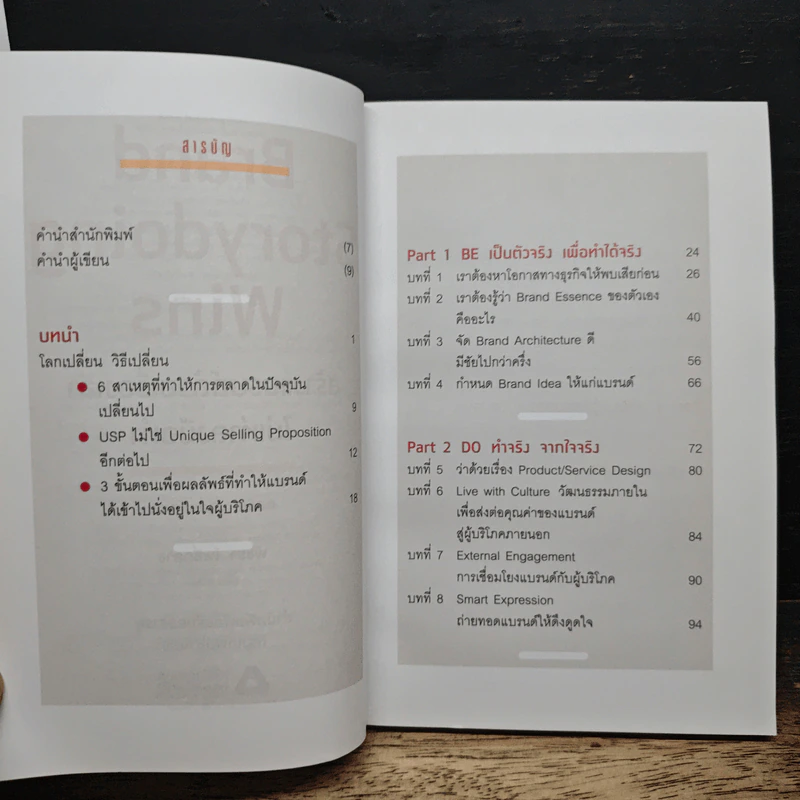 สารบัญ
คำนำสำนักพิมพ์ (7)
คำนำผู้เขียน (9)
บทนำ 1
โลกเปลี่ยน วิธีเปลี่ยน
6 สาเหตุที่ทำให้การตลาดในปัจจุบัน
เปลี่ยนไป 9
USP ไม่ใช่ Unique Selling Proposition
อีกต่อไป 12
3 ขั้นตอนเพื่อผลลัพธ์ที่ทำให้แบรนด์
ได้เข้าไปนั่งอยู่ในใจผู้บริโภค 18
Part 1 BE เป็นตัวจริง เพื่อทำได้จริง 24
บทที่ 1 เราต้องหาโอกาสทางธุรกิจให้พบเสียก่อน 26
บทที่ 2 เราต้องรู้ว่า Brand Essence ของตัวเอง
คืออะไร 40
บทที่ 3 จัด Brand Architecture ดี
มีชัยไปกว่าครึ่ง 56
บทที่ 4 กำหนด Brand Idea ให้แก่แบรนด์ 66
Part 2 DO ทำจริง จากใจจริง 72
บทที่ 5 ว่าด้วยเรื่อง Product/Service Design 80
บทที่ 6 Live with Culture วัฒนธรรมภายใน
เพื่อส่งต่อคุณค่าของแบรนด์
สู่ผู้บริโภคภายนอก 84
บทที่ 7 External Engagement
การเชื่อมโยงแบรนด์กับผู้บริโภค 90
บทที่ 8 Smart Expression
ถ่ายทอดแบรนด์ให้ดึงดูดใจ 94